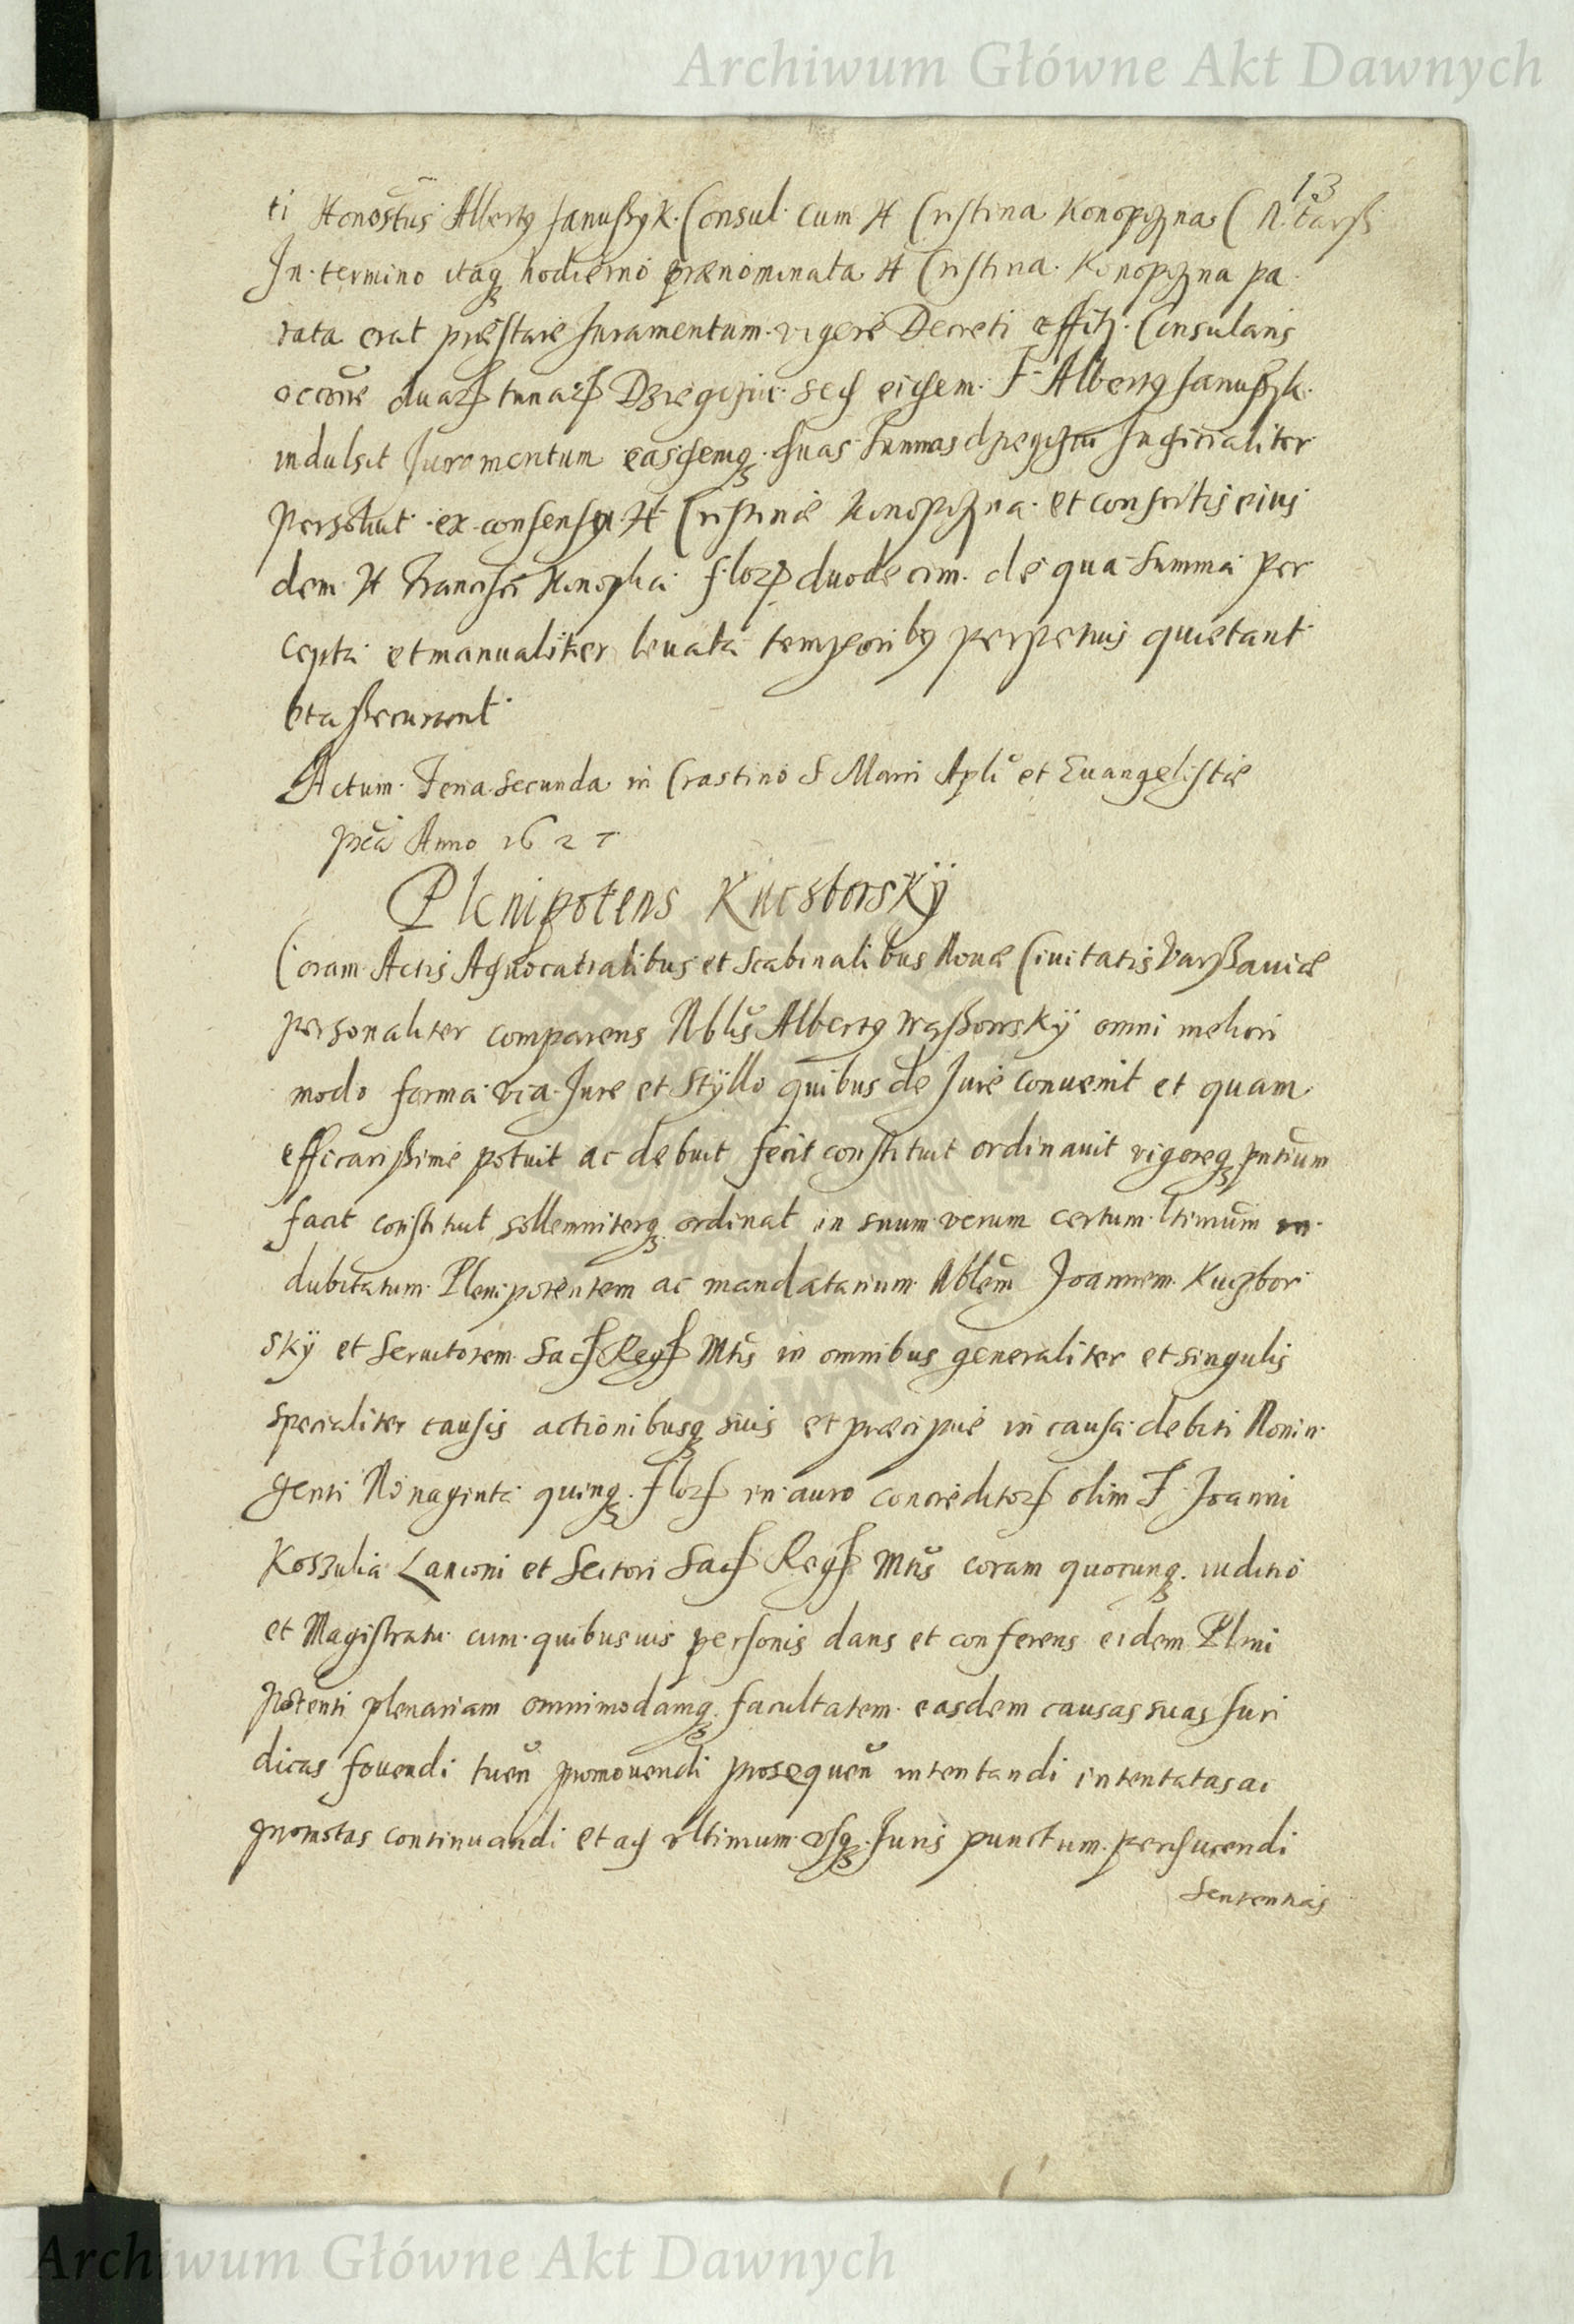 Archiwum Główne Akt Dawnych
13
ti Honestus Albertꝰ Janußyk. Consul. cum H Cristina Konopczna C N. Varß
In termino itaqꝫ hodierno prænominata H Cristina Konopczna pa
rata erat præstare Juramentum vigore Decreti Offitÿ. Consularis
duarꝝ tunarꝝ sed eidem F Albertꝰ Janußyk.
indulsit Juramentum easdemqꝫ duas Judicialiter
persoluit ex consensu H Cristinæ Konopczna et eius
dem H Konopka florꝝ duodecim. de qua Summa per
cepta et manualiter leuata temporibꝰ perpetuis quietant

Actum Feria Secunda in Crastino S Marci Apli et Euangelistæ
Anno 162
Plenipotens Kucsborskÿ
Coram Actis Aduocatialibus et Scabinalibus Nouæ Ciuitatis Varßauiæ
personaliter comparens Nbls Albertꝰ Waßowskÿ omni meliori
modo forma via Jure et Stÿllo quibus de Jure conuenit et quam
efficacißime potuit ac debuit fecit constituit ordinauit vigoreqꝫ pntium
facit constituit sollemniterqꝫ ordinat in suum verum certum ltimum in
dubitatum Plenipotentem ac mandatarium Nblem Joannem Kuczbor
skÿ et Seruitorem Sacꝝ Regꝝ Mtis in omnibus generaliter et singulis
specialiter causis actionibusqꝫ suis et præcipue in causa debiti Nonin
genti Nonaginta quinqꝫ florꝝ in auro concreditorꝝ olim F Joanni
Koszulia Lanioni et Sectori Sacꝝ Regꝝ Mtis coram quocunqꝫ iuditio
et Magistratu cum quibusuis personis dans et conferens eidem Pleni
potenti plenariam omnimodamqꝫ facultatem easdem causas suas Juri
dicas fouendi tuen promouendi prosequen intentandi intentatas ac
promotas continuandi et ad vltimum vsqꝫ Juris punctum perducendi
Sententias
Archiwum Główne Akt Dawnych